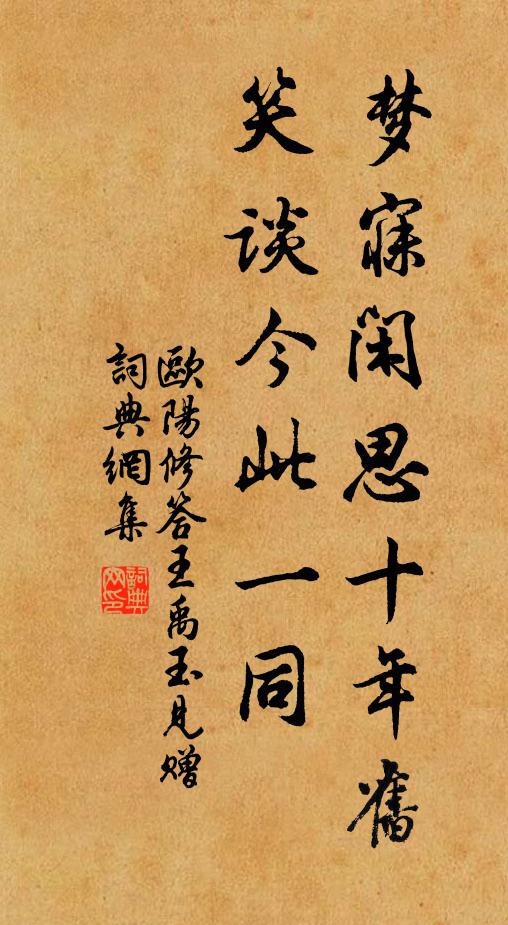 梦寐闲思十年舊
笑谈今此一同
歐陽修答王禹玉見赠
詞典網集
詞典网印